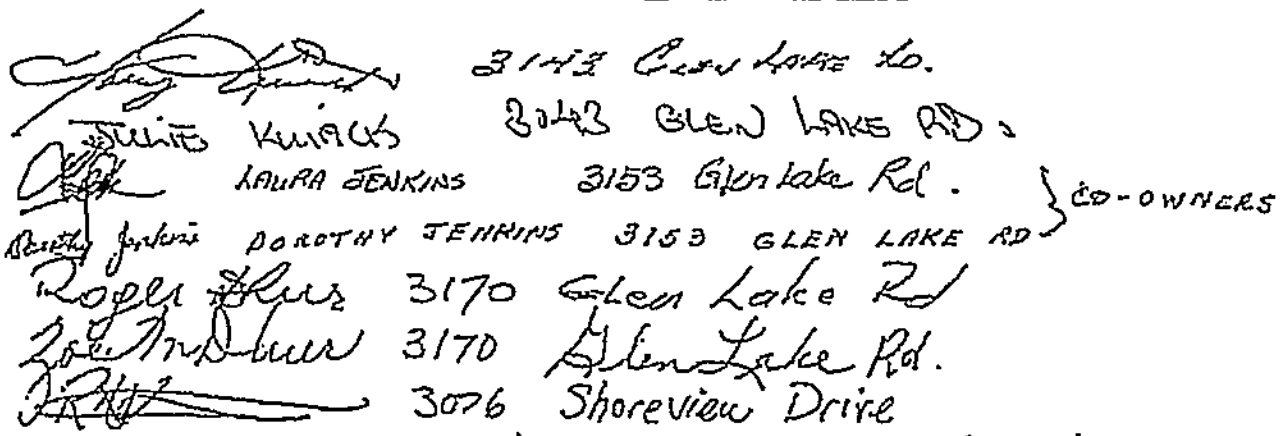 3143 Glen Lake Rd.
JULIE 3043 GLEN LAKE RD.
LAURA JENKINS 3153 Glen Lake Rd. } CO-OWNERS
Dorothy Jenkins DOROTHY JENKINS 3153 GLEN LAKE RD
Roger 3170 Glen Lake Rd
Zoe 3170 Glen Lake Rd.
3076 Shoreview Drive